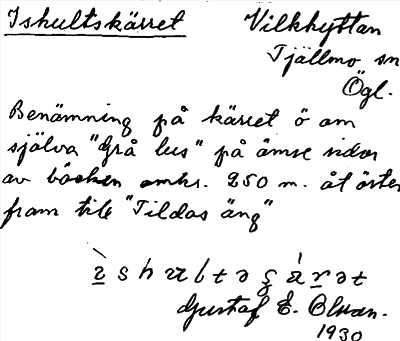 Ishultskärret
Vilkhyttan
Tjällmo sn
Ögl.
Benämning på kärret ö om
själva "Grå lus" på ömse sidor
av bäcken omkr. 250 m. åt öster
fram till "Tildas äng"
Gustaf E. Olsson.
1930